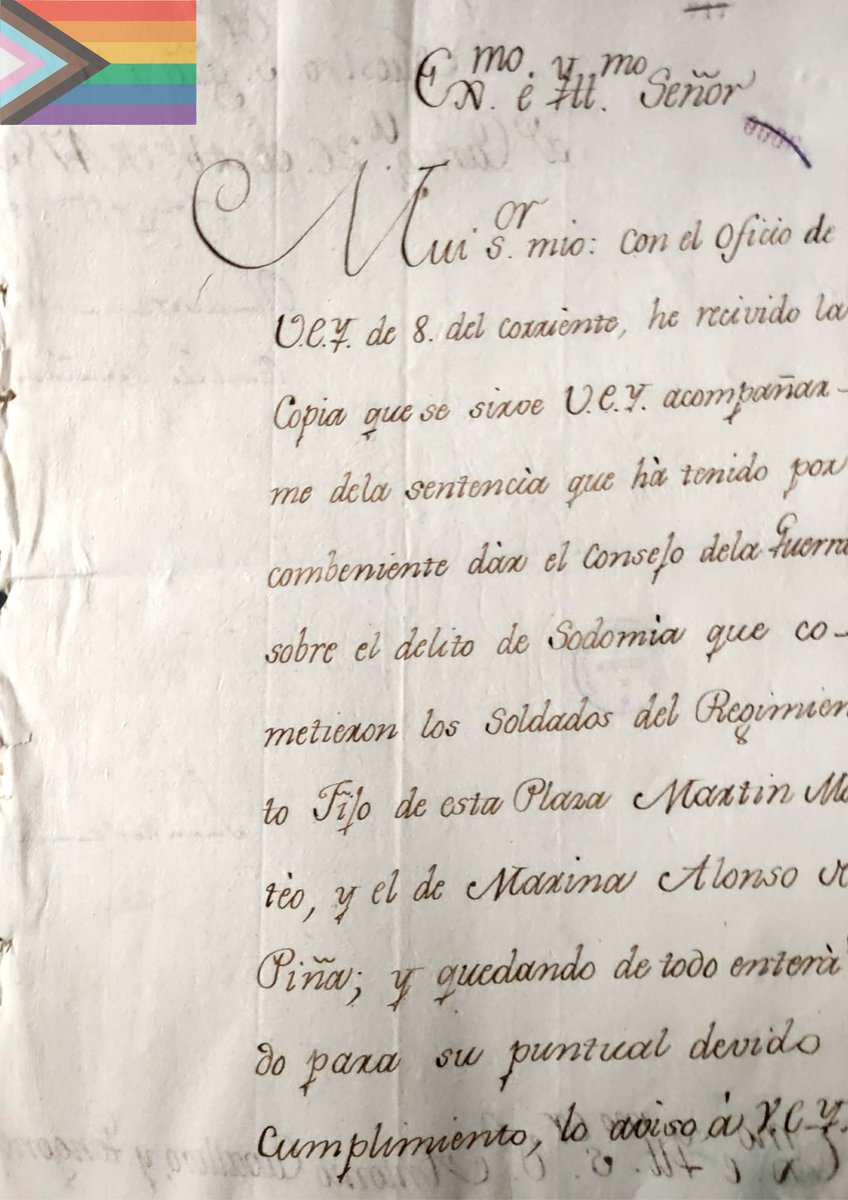 Exmo. e Yllmo. Señor
Mui sor. mio: Con el Oficio de
V.E.Y. de 8. del corriente, he recivido la
Copia que se sirve V.E.Y. acompañar-
me dela sentencia que hà tenido por
combeniente dàr el Consejo dela Guerra
sobre el delito de Sodomìa que co-
metieron los Soldados del Regimien
to Fijo de esta Plaza Martin Ma
tèo, y el de Marina Alonso
Piña; y quedando de todo enterà
do para su puntual devido
Cumplimiento, lo aviso à V.E.Y.